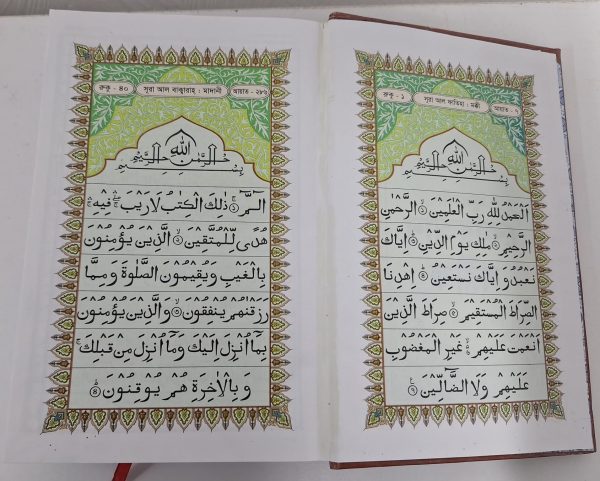 রুকু - ১ সূরা আল ফাতিহা : মক্কী আয়াত - ৭
بِسْمِ اللهِ الرَّحْمٰنِ الرَّحِيْمِ
اَلْحَمْدُ لِلّٰهِ رَبِّ الْعٰلَمِيْنَ ۝ الرَّحْمٰنِ
الرَّحِيْمِ ۝ مٰلِكِ يَوْمِ الدِّيْنِ ۝ اِيَّاكَ
نَعْبُدُ وَ اِيَّاكَ نَسْتَعِيْنُ ۝ اِهْدِنَا
الصِّرَاطَ الْمُسْتَقِيْمَ ۝ صِرَاطَ الَّذِيْنَ
اَنْعَمْتَ عَلَيْهِمْ ۝ غَيْرِ الْمَغْضُوْبِ
عَلَيْهِمْ وَلَا الضَّآلِّيْنَ ۝
রুকু - ৪০ সূরা আল বাক্বারাহ্ : মাদানী আয়াত - ২৮৬
بِسْمِ اللهِ الرَّحْمٰنِ الرَّحِيْمِ
الٓمّٓ ۝ ذٰلِكَ الْكِتٰبُ لَا رَيْبَ ۛ فِيْهِ ۛ
هُدًى لِّلْمُتَّقِيْنَ ۝ الَّذِيْنَ يُؤْمِنُوْنَ
بِالْغَيْبِ وَيُقِيْمُوْنَ الصَّلٰوةَ وَمِمَّا
رَزَقْنٰهُمْ يُنْفِقُوْنَ ۝ وَالَّذِيْنَ يُؤْمِنُوْنَ
بِمَآ اُنْزِلَ اِلَيْكَ وَمَآ اُنْزِلَ مِنْ قَبْلِكَ ۚ
وَ بِالْاٰخِرَةِ هُمْ يُوْقِنُوْنَ ۝